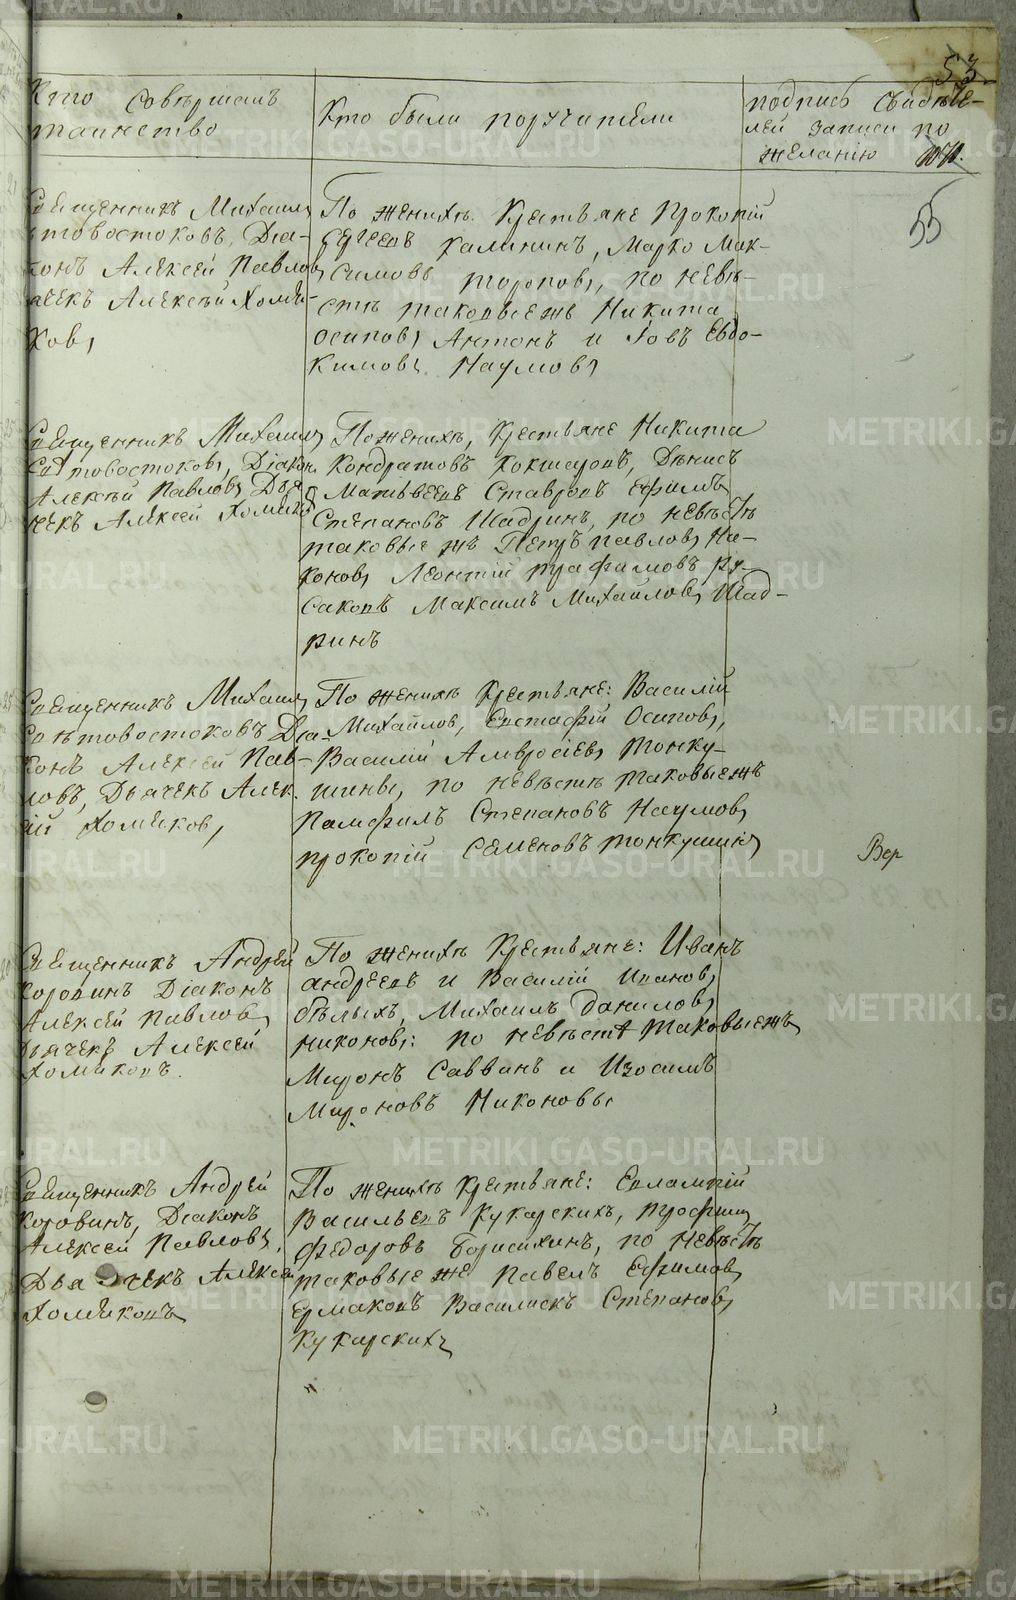 53
Кто совершалъ
таинство
Кто были поручители
подпись свидѣте-
лей записи по
желанію
55
Священникъ Михаилъ
Діа-
конъ Алексей Павловъ
ячекъ Алексѣй Хомя-
ковъ
По женихѣ Крестьяне Прокопій
Сергеевъ Калининъ, Марко Мак-
симовъ Тороповъ, по невѣ-
стѣ таковыежъ Никита
Осиповъ Антонъ и Іовъ Евдо-
кимовы Наумовы
Священникъ Михаилъ
Свѣтовостоковъ, Діаконъ
Алексѣй Павловъ Дья
чекъ Алексей Хомяковъ
По женихѣ, Крестьяне Никита
Кондратовъ Кокшаровъ, Денисъ
Матвѣевъ Ставровъ Ефимъ
Степановъ Шадринъ, по невѣстѣ
таковые жъ Петръ Павловъ Ни-
коновъ Леонтій Трафимовъ Ру-
саковъ Максимъ Михайловъ Шад-
ринъ
Священникъ Михаилъ
Свѣтовостоковъ Діа-
конъ Алексей Пав-
ловъ, Дьячекъ Алек
ѣй Хомяковъ,
По женихѣ Крестьяне: Василій
Михайлов, Евстафій Осиповъ,
Василій Амвросіевъ Тонку-
шины, по невѣстѣ таковыежъ
Памфилъ Степановъ Наумовъ
Прокопій Семеновъ Тонкушинъ
Вер
Священникъ Андрей
Коровинъ Діаконъ
Алексей Павловъ
Дьячекъ Алексей
Хомяковъ.
По женихѣ Крестьяне: Иванъ
Андреевъ и Василій Ивановъ
Бѣлыхъ, Михаилъ Даниловъ
Никоновъ: по невѣстѣ таковыежъ
Миронъ Саввинъ и Изосимъ
Мироновъ Никоновы
Священникъ Андрей
Коровинъ, Діаконъ
Алексей Павловъ,
Дья чекъ Алексей
Хомяковъ
По женихѣ Крестьяне: Евлампій
Васильевъ Кукарскихъ, Трофимъ
Федоровъ Борисихинъ, по невѣстѣ
таковые же Павелъ Ефимовъ
Ермаковъ Василискъ Степановъ
Кукарскихъ
METRIKI.GASO-URAL.RU